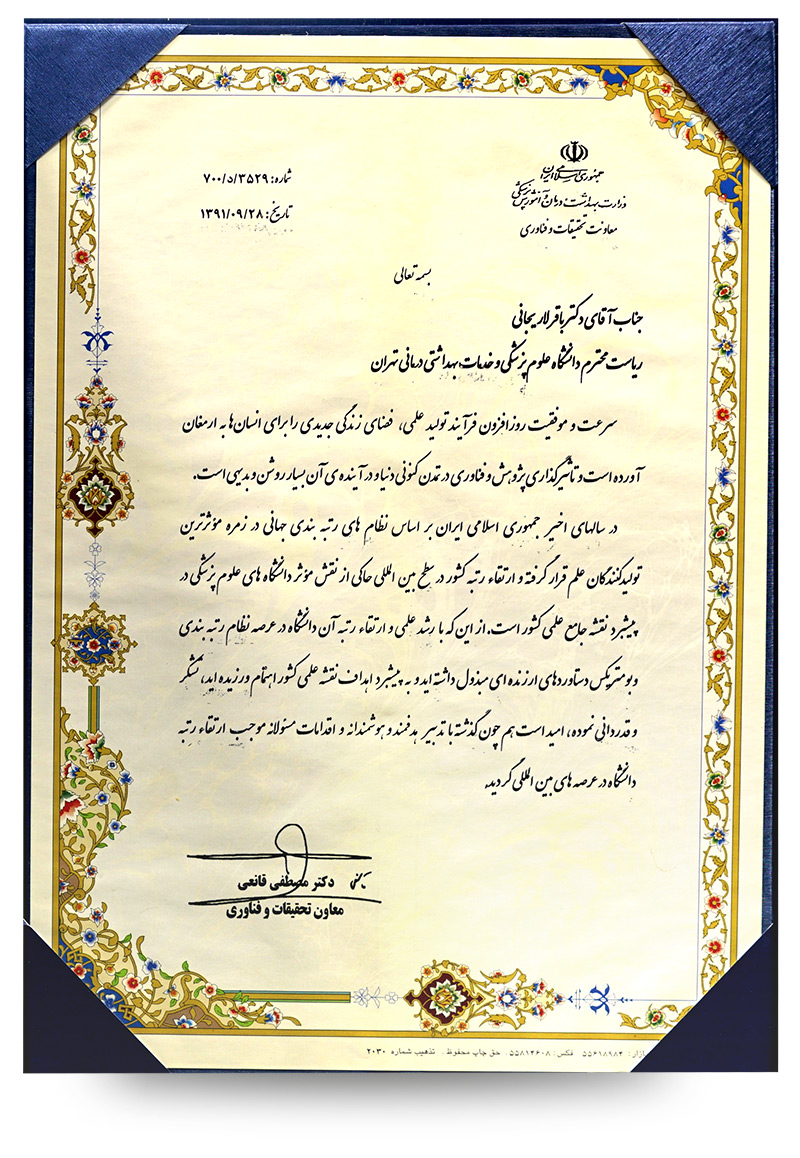 جمهوری اسلامی ایران
وزارت بهداشت، درمان و آموزش پزشکی
معاونت تحقیقات و فناوری
شماره: ۷۰۰/د/۳۵۲۹
تاریخ: ۱۳۹۱/۰۹/۲۸
بسمه تعالی
جناب آقای دکتر باقر لاریجانی
ریاست محترم دانشگاه علوم پزشکی و خدمات بهداشتی درمانی تهران
سرعت و موفقیت روزافزون فرآیند تولید علمی، فضای زندگی جدیدی را برای انسان‌ها به ارمغان
آورده است و تأثیرگذاری پژوهش و فناوری در تمدن کنونی دنیا و در آینده ی آن بسیار روشن و بدیهی است.
در سالهای اخیر جمهوری اسلامی ایران بر اساس نظام های رتبه بندی جهانی در زمره مؤثرترین
تولیدکنندگان علم قرار گرفته و ارتقاء رتبه کشور در سطح بین المللی حاکی از نقش مؤثر دانشگاه های علوم پزشکی در
پیشبرد نقشه جامع علمی کشور است. از این که با رشد علمی و ارتقاء رتبه آن دانشگاه در عرصه نظام رتبه بندی
وبومتریکس دستاوردهای ارزنده ای مبذول داشته اید و به پیشبرد اهداف نقشه علمی کشور اهتمام ورزیده اید، تشکر
و قدردانی نموده، امید است هم چون گذشته با تدبیر هدفمند و هوشمندانه و اقدامات مسئولانه موجب ارتقاء رتبه
دانشگاه در عرصه های بین المللی گردید.
دکتر مصطفی قانعی
معاون تحقیقات و فناوری
بازار: ۵۵۶۱۸۹۸۴ فکس: ۵۵۸۱۴۶۰۸ . حق چاپ محفوظ . تذهیب شماره ۲۰۳۰